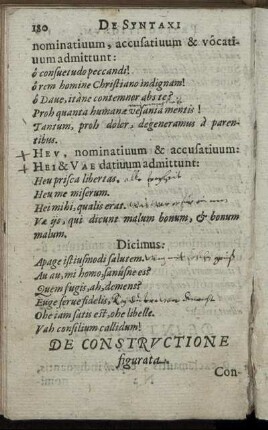 180 DE SYNTAXI
nominatiuum, accusatiuum & vôcati-
uum admittunt:
ô consuetudo peccandi!
ô rem homine Christiano indignam!
ô Daue, itàne contemnor abs te?
Proh quanta humanæ vesania mentis!
Tantum, proh dolor, degeneramus à paren-
tibus.
+ HEV, nominatiuum & accusatiuum:
+ HEI & VAE datiuum admittunt:
Heu prisca libertas,
Heu me miserum.
Hei mihi, qualis erat.
Væ ijs, qui dicunt malum bonum, & bonum
malum.
Dicimus:
Apage istiusmodi salutem.
Au au, mi homo, sanúsne es?
Quem fugis, ah, demens?
Euge serue fidelis,
Ohe iam satis est, ohe libelle.
Vah consilium callidum!
DE CONSTRVCTIONE
figurata.
Con-